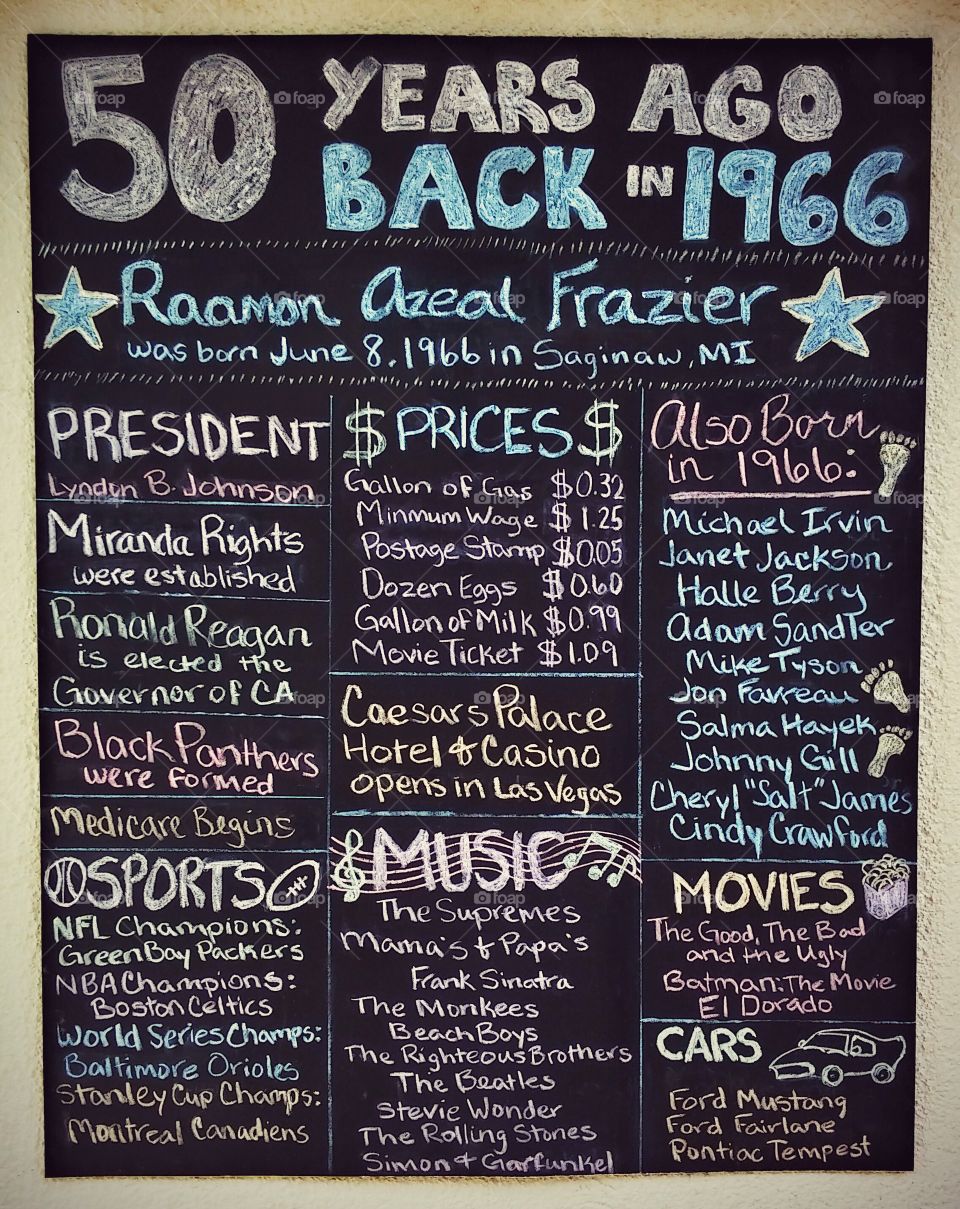 50 YEARS AGO
BACK IN 1966
Raamon Azeal Frazier
was born June 8, 1966 in Saginaw, MI
PRESIDENT
Lyndon B. Johnson
Miranda Rights
were established
Ronald Reagan
is elected the
Governor of CA
Black Panthers
were formed
Medicare Begins
SPORTS
NFL Champions:
Green Bay Packers
NBA Champions:
Boston Celtics
World Series Champs:
Baltimore Orioles
Stanley Cup Champs:
Montreal Canadiens
$ PRICES $
Gallon of Gas $0.32
Minmum Wage $1.25
Postage Stamp $0.05
Dozen Eggs $0.60
Gallon of Milk $0.99
Movie Ticket $1.09
Caesars Palace
Hotel & Casino
opens in Las Vegas
MUSIC
The Supremes
Mama's & Papa's
Frank Sinatra
The Monkees
Beach Boys
The Righteous Brothers
The Beatles
Stevie Wonder
The Rolling Stones
Simon & Garfunkel
Also Born
in 1966:
Michael Irvin
Janet Jackson
Halle Berry
Adam Sandler
Mike Tyson
Jon Favreau
Salma Hayek
Johnny Gill
Cheryl "Salt" James
Cindy Crawford
MOVIES
The Good, The Bad
and the Ugly
Batman: The Movie
El Dorado
CARS
Ford Mustang
Ford Fairlane
Pontiac Tempest
foap